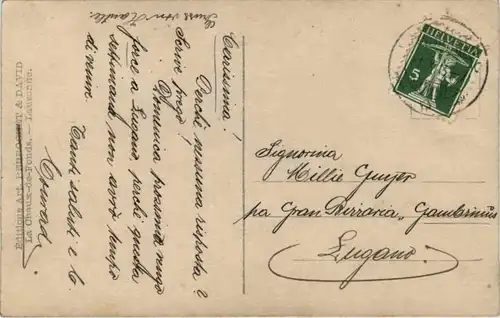 Gruss von Mantie.
Carissima!
Perchè nessuna risposta?
Scrive prego!
Domenica prossima vengo
force a Lugano, perchè questa
settimana non avrò tempo
di venire.
Tanti saluti e b.
Conrad.
Editions Art. PERROCHET & DAVID
La Chaux-de-Fonds. — Lausanne.
HELVETIA
5
Signorina
Millie Gujer
pa Gran Birraria „Gambrinus
Lugano.